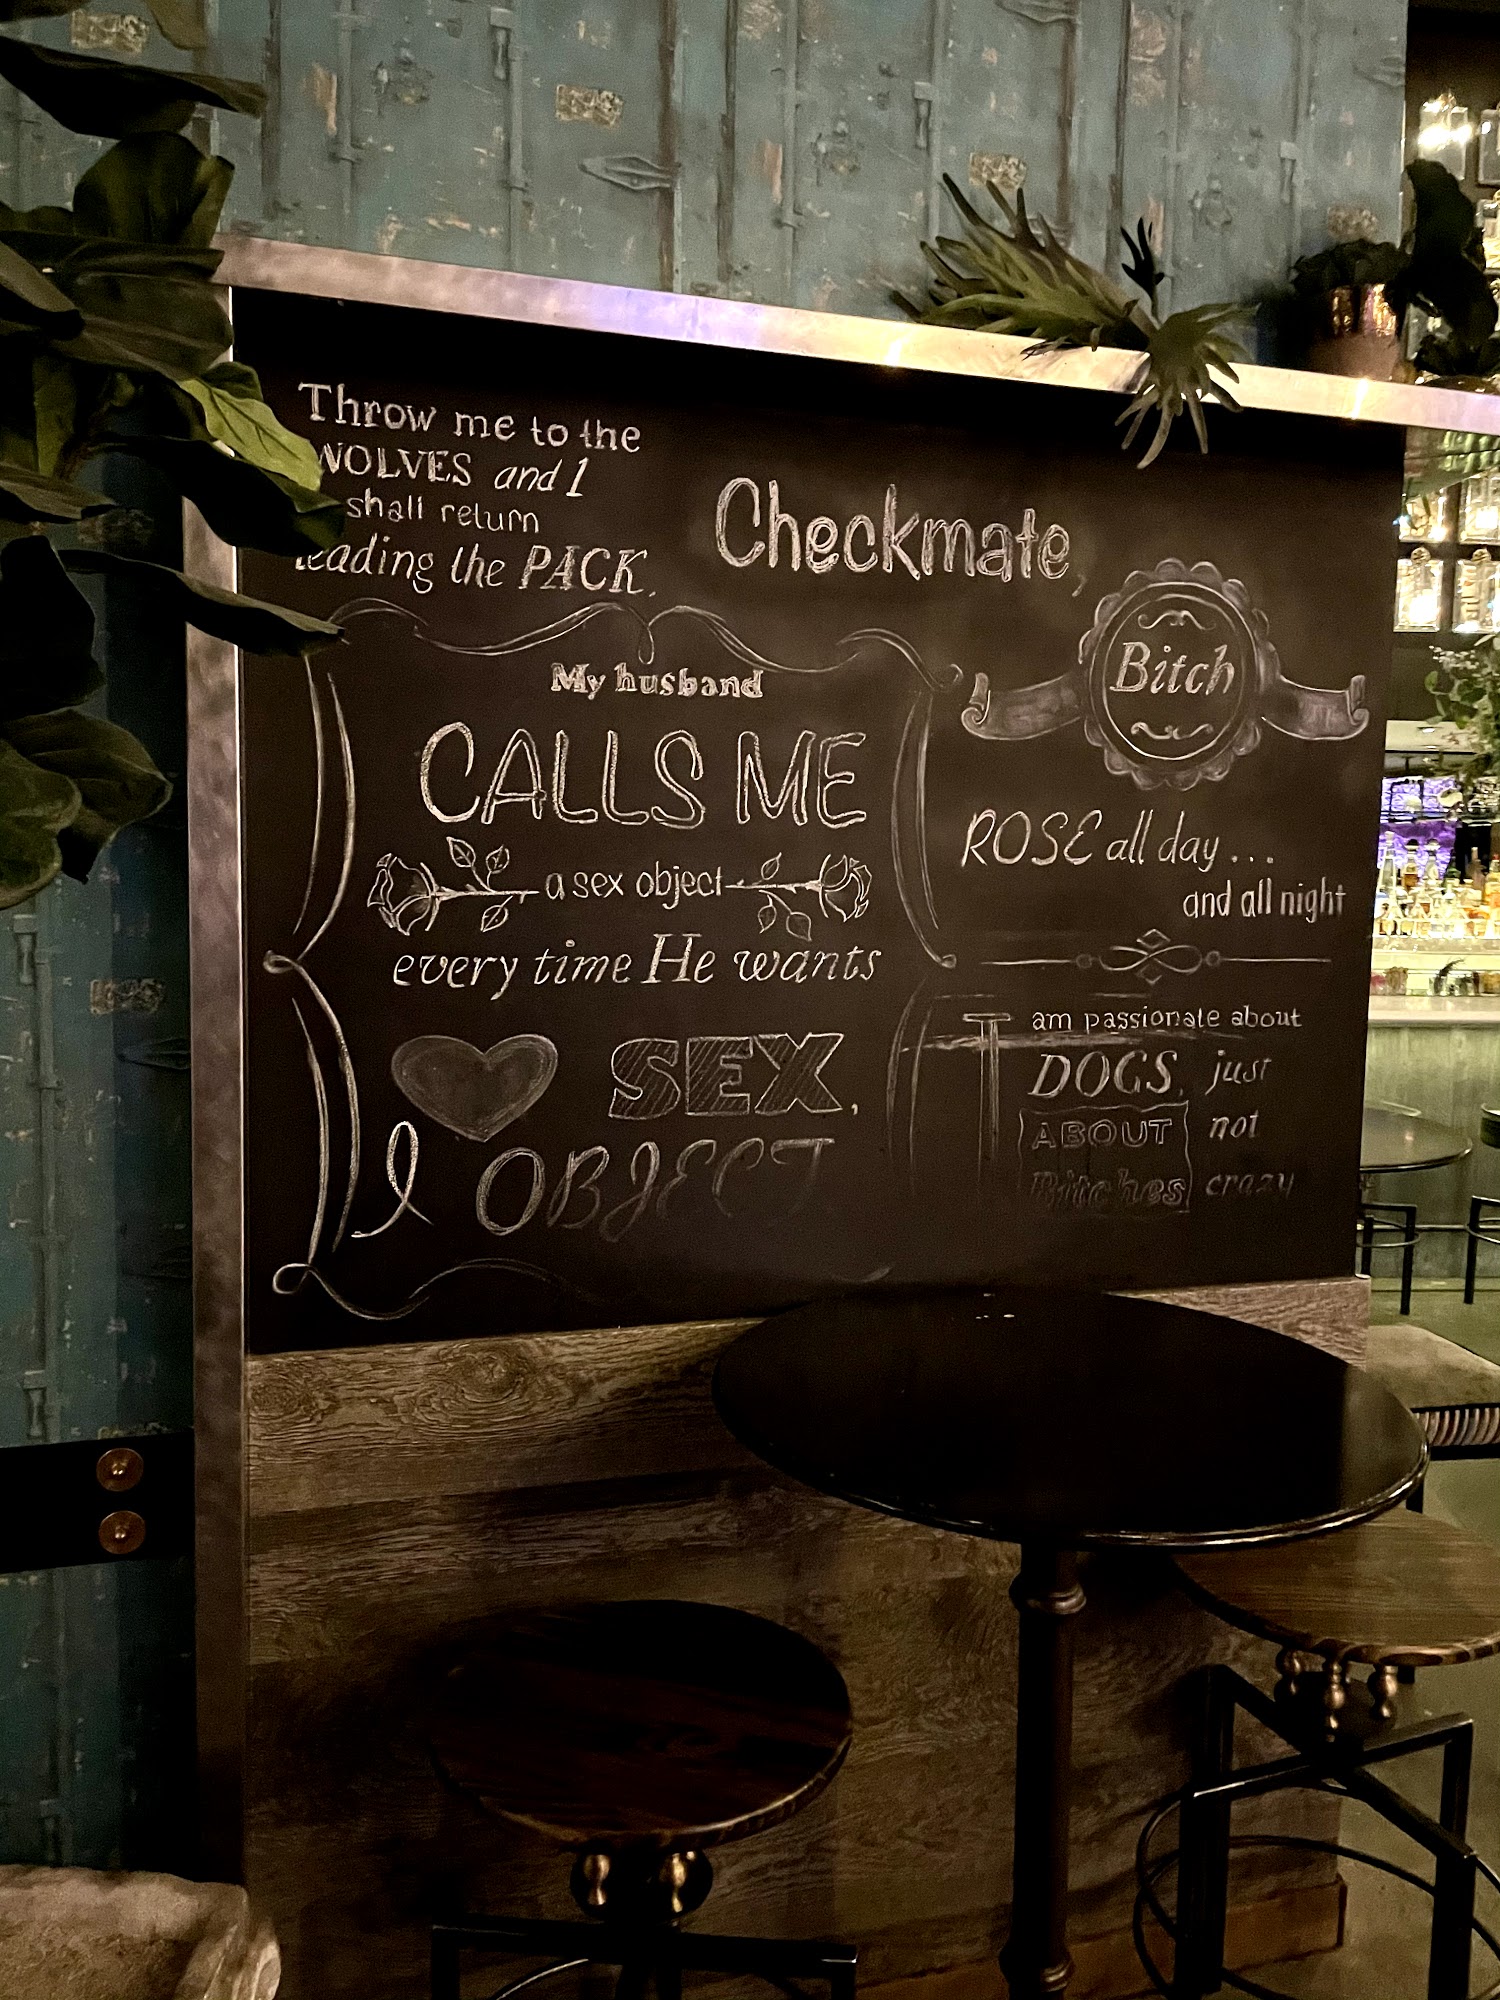 Throw me to the
WOLVES and I
shall return
leading the PACK.
Checkmate,
Bitch
My husband
CALLS ME
a sex object
every time He wants
SEX,
I OBJECT
ROSE all day...
and all night
I am passionate about
DOGS, just
ABOUT not
Bitches crazy